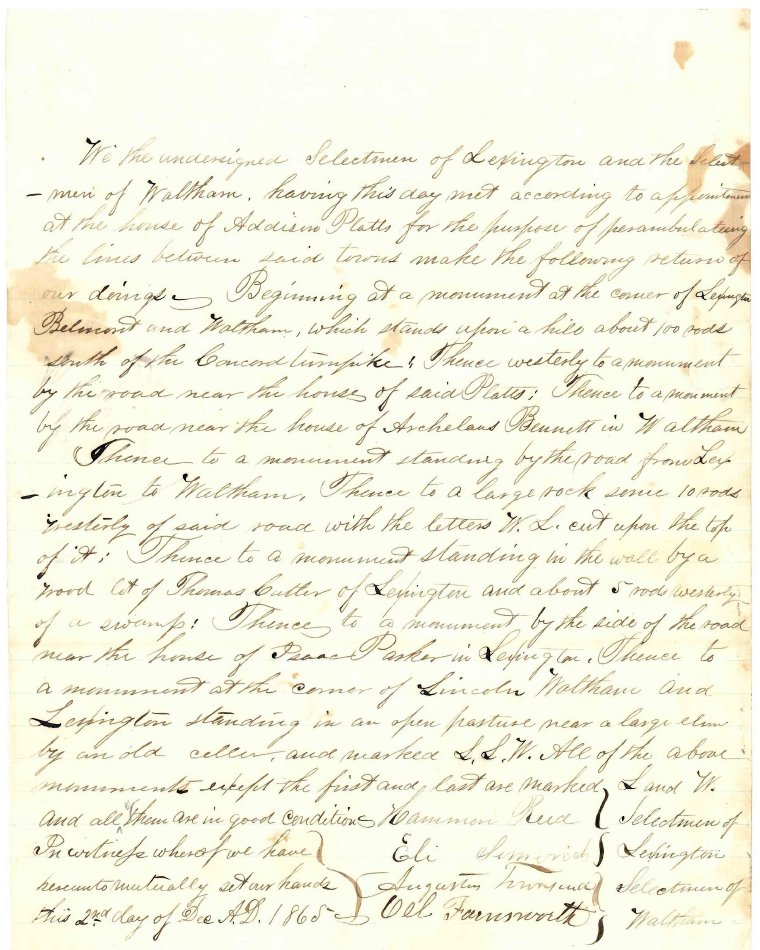 We the undersigned Selectmen of Lexington and the Select-
-men of Waltham, having this day met according to appointment
at the house of Addison Platts for the purpose of perambulateing
the lines between said towns make the following return of
our doings. Beginning at a monument at the corner of Lexington
Belmont and Waltham, which stands upon a hill about 100 rods
south of the Concord turnpike; Thence westerly to a monument
by the road near the house of said Platts; Thence to a monment
by the road near the house of Archelaus Bennett in Waltham
Thence to a monument standing by the road from Lex-
-ington to Waltham, Thence to a large rock some 10 rods
westerly of said road with the letters W. L. cut upon the top
of it; Thence to a monument standing in the wall by a
wood lot of Thomas Cutler of Lexington and about 5 rods westerly
of a swamp: Thence to a monument by the side of the road
near the house of Isaac Parker in Lexington. Thence to
a monument at the corner of Lincoln Waltham and
Lexington standing in an open pasture near a large elm
by an old celler, and marked L. L. W. All of the above
monuments except the first and last are marked L and W.
and all of them are in good condition Hammon Reid Selectmen of
In witness whereof we have Eli Lexington
hereunto mutually set our hands Augustus Townsend Selectmen of
this 2nd day of Dec A.D. 1865 Farnsworth Waltham